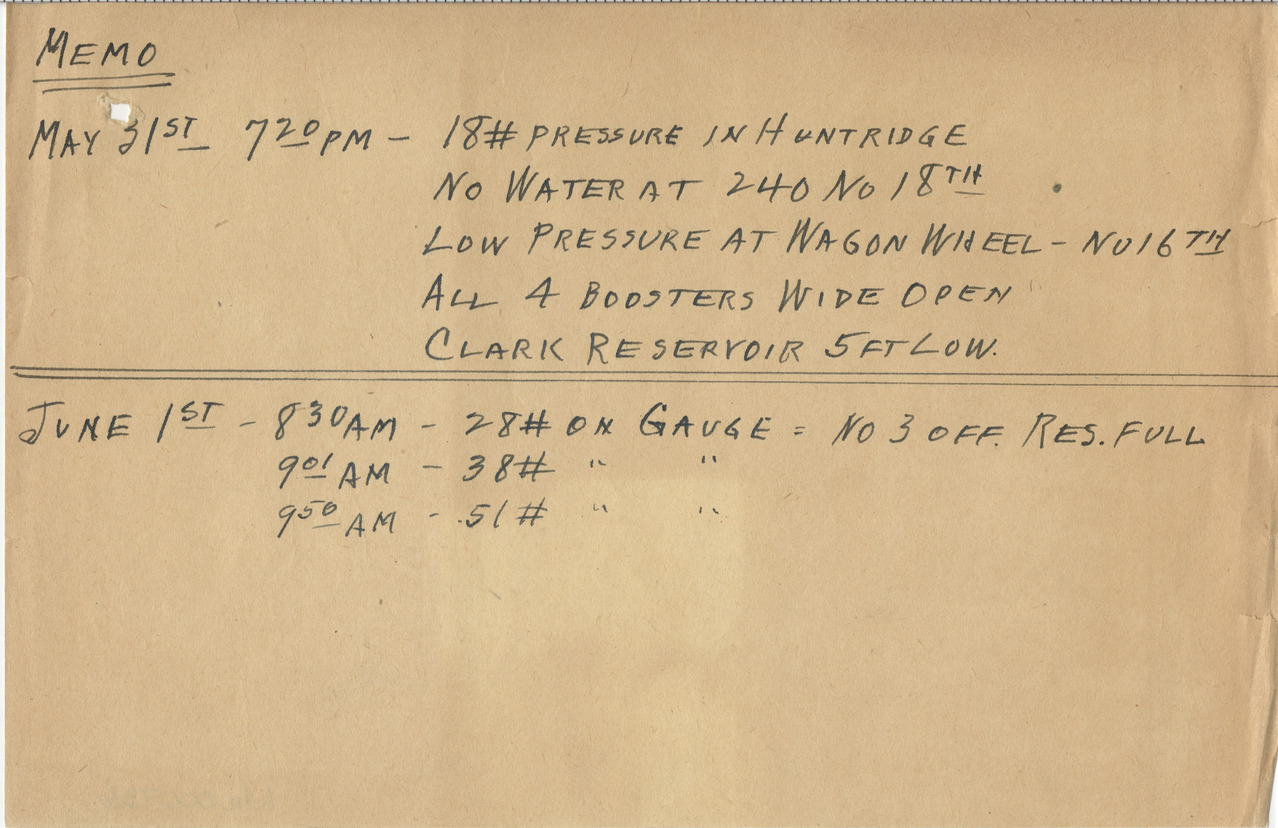 MEMO
MAY 31ST 720 PM - 18# PRESSURE IN HUNTRIDGE
NO WATER AT 240 NO 18TH
LOW PRESSURE AT WAGON WHEEL - NO 16TH
ALL 4 BOOSTERS WIDE OPEN
CLARK RESERVOIR 5 FT LOW.
JUNE 1ST - 830 AM - 28# ON GAUGE = NO 3 OFF. RES. FULL
901 AM - 38# " "
950 AM - 51# " "